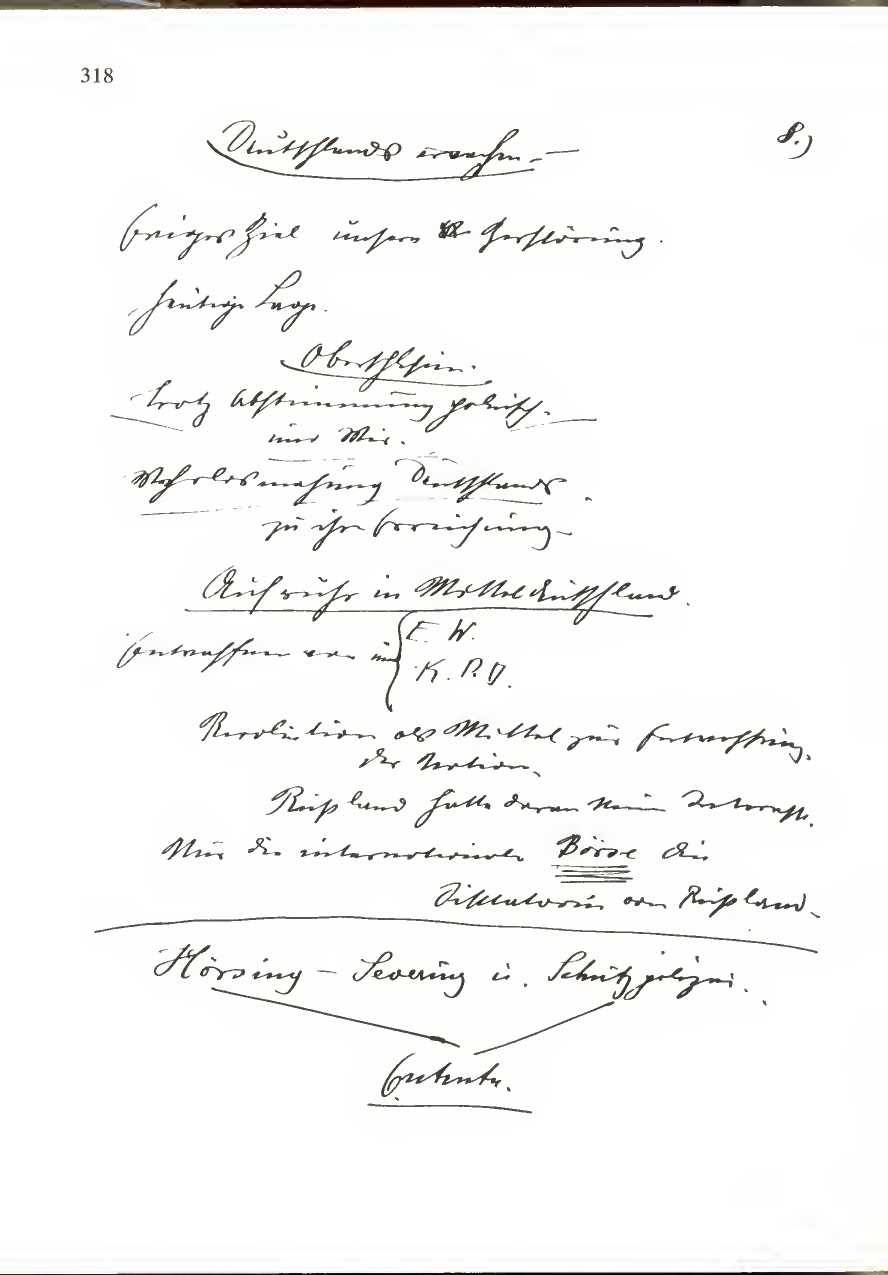 318
Deutschlands erwachen. — 8.)
Ewiges Ziel unsere Zerstörung.
heutige Lage.
Oberschlesien.
trotz Abstimmung polnisch.
und Wir.
Wehrlosmachung Deutschlands
zu ihrer Erreichung —
Aufruhr in Mitteldeutschland.
Entwaffnen von
E. W.
K. P. D.
Revolution als Mittel zur Entwaffnung
der Nation.
Rußland hatte daran kein Interesse.
Nur die internationale Börse die
Diktatorin von Rußland.
Hörsing – Severing u. Schutzpolizei.
Entente.